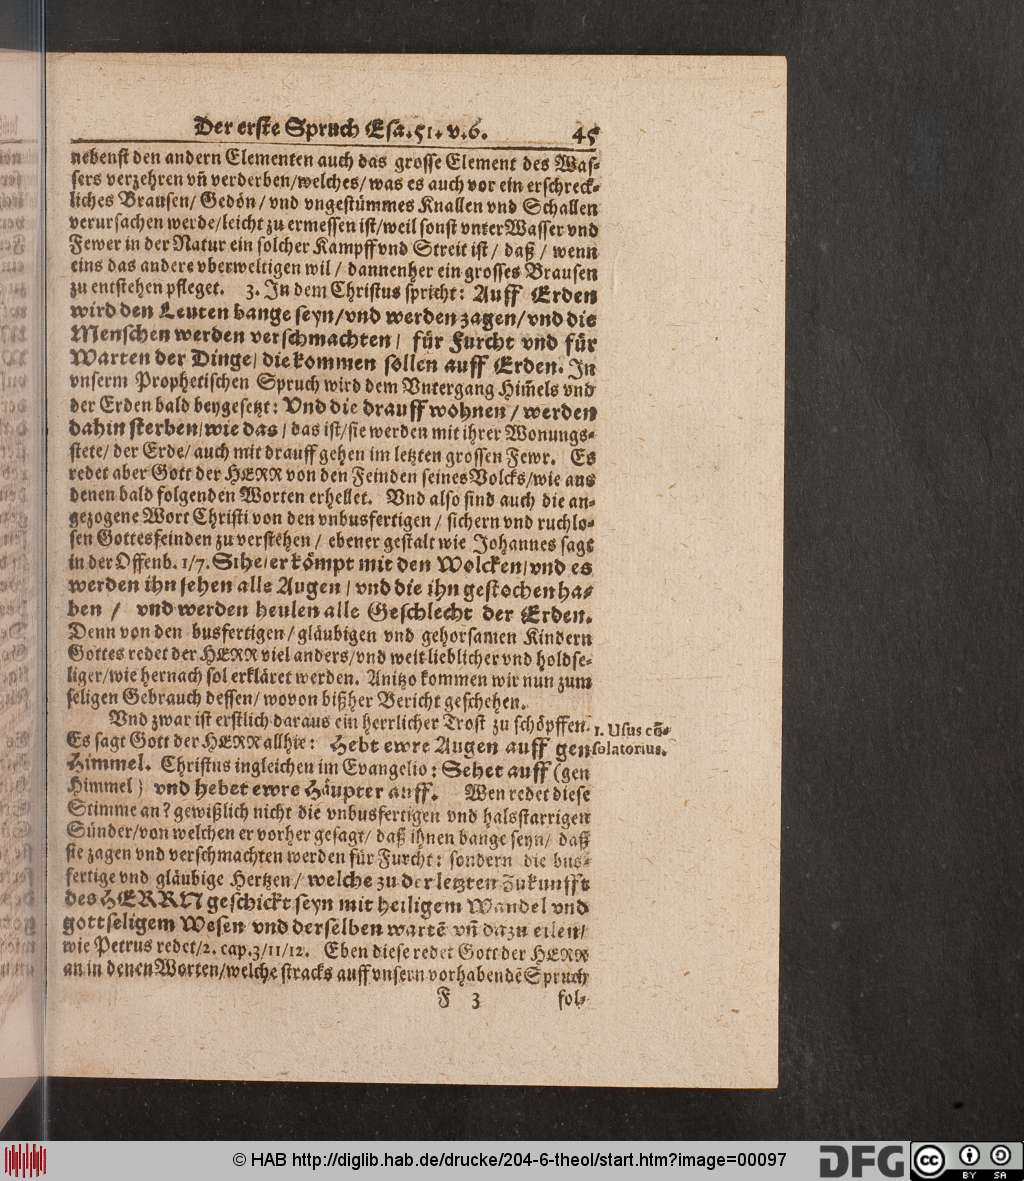 Der erste Spruch Esa. 51. v. 6. 45
nebenst den andern Elementen auch das grosse Element des Was-
sers verzehren vn̄ verderben/welches/was es auch vor ein erschreck-
liches Brausen/ Gedön/ vnd vngestümmes Knallen vnd Schallen
verursachen werde/leicht zu ermessen ist/weil sonst vnter Wasser vnd
Fewer in der Natur ein solcher Kampff vnd Streit ist/ daß/ wenn
eins das andere vberweltigen wil/ dannenher ein grosses Brausen
zu entstehen pfleget. 3. In dem Christus spricht: Auff Erden
wird den Leuten bange seyn/vnd werden zagen/vnd die
Menschen werden verschmachten/ für Furcht vnd für
Warten der Dinge/ die kommen sollen auff Erden. In
vnserm Prophetischen Spruch wird dem Vntergang Him̄els vnd
der Erden bald beygesetzt: Vnd die drauff wohnen/ werden
dahin sterben/wie das/ das ist/sie werden mit ihrer Wonungs-
stete/ der Erde/ auch mit drauff gehen im letzten grossen Fewr. Es
redet aber Gott der HERR von den Feinden seines Volcks/wie aus
denen bald folgenden Worten erhellet. Vnd also sind auch die an-
gezogene Wort Christi von den vnbusfertigen/ sichern vnd ruchlo-
sen Gottesfeinden zu verstehen/ ebener gestalt wie Johannes sagt
in der Offenb. 1/7. Sihe/er kömpt mit den Wolcken/vnd es
werden ihn sehen alle Augen/ vnd die ihn gestochen ha-
ben/ vnd werden heulen alle Geschlecht der Erden.
Denn von den busfertigen/ gläubigen vnd gehorsamen Kindern
Gottes redet der HERR viel anders/vnd weit lieblicher vnd holdse-
liger/wie hernach sol erkläret werden. Anitzo kommen wir nun zum
seligen Gebrauch dessen/ wovon bißher Bericht geschehen.
Vnd zwar ist erstlich daraus ein herrlicher Trost zu schöpffen.
1. Usus cō-
solatorius.
Es sagt Gott der HERR allhie: Hebt ewre Augen auff gen
Himmel. Christus ingleichen im Evangelio: Sehet auff (gen
Himmel) vnd hebet ewre Häupter auff. Wen redet diese
Stimme an? gewißlich nicht die vnbusfertigen vnd halsstarrigen
Sünder/von welchen er vorher gesagt/ daß ihnen bange seyn/ daß
sie zagen vnd verschmachten werden für Furcht: sondern die bus-
fertige vnd gläubige Hertzen/ welche zu der letzten Zukunfft
des HERRN geschickt seyn mit heiligem Wandel vnd
gottseligem Wesen vnd derselben wartē vn̄ dazu eilen/
wie Petrus redet/2. cap. 3/11/12. Eben diese redet Gott der HERR
an in denen Worten/welche stracks auff vnsern vorhabendē Spruch
F 3 fol-
© HAB http://diglib.hab.de/drucke/204-6-theol/start.htm?image=00097
DFG
cc
BY SA